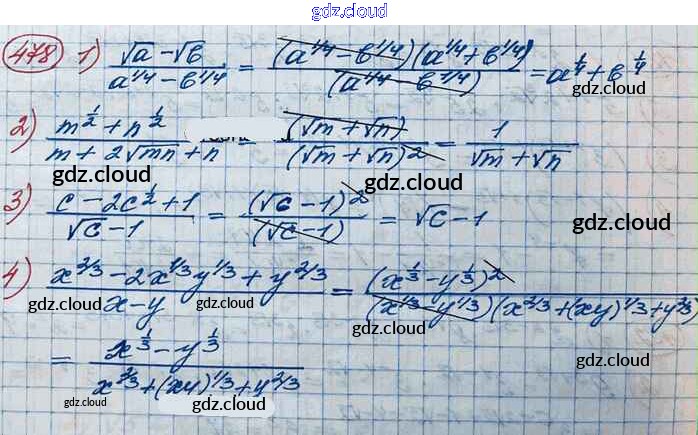 gdz.cloud
478 1) (√a − √b)/(a^{1/4} − b^{1/4}) = ((a^{1/4} − b^{1/4})(a^{1/4} + b^{1/4}))/(a^{1/4} − b^{1/4}) = a^{1/4} + b^{1/4}
gdz.cloud gdz.cloud
2) (m^{1/2} + n^{1/2})/(m + 2√mn + n) = (√m + √n)/(√m + √n)^2 = 1/(√m + √n)
gdz.cloud gdz.cloud
3) (c − 2c^{1/2} + 1)/(√c − 1) = (√c − 1)^2/(√c − 1) = √c − 1
gdz.cloud
4) (x^{2/3} − 2x^{1/3}y^{1/3} + y^{2/3})/(x − y) = (x^{1/3} − y^{1/3})^2/((x^{1/3} − y^{1/3})(x^{2/3} + (xy)^{1/3} + y^{2/3}))
gdz.cloud gdz.cloud gdz.cloud
= (x^{1/3} − y^{1/3})/(x^{2/3} + (xy)^{1/3} + y^{2/3})
gdz.cloud
gdz.cloud gdz.cloud